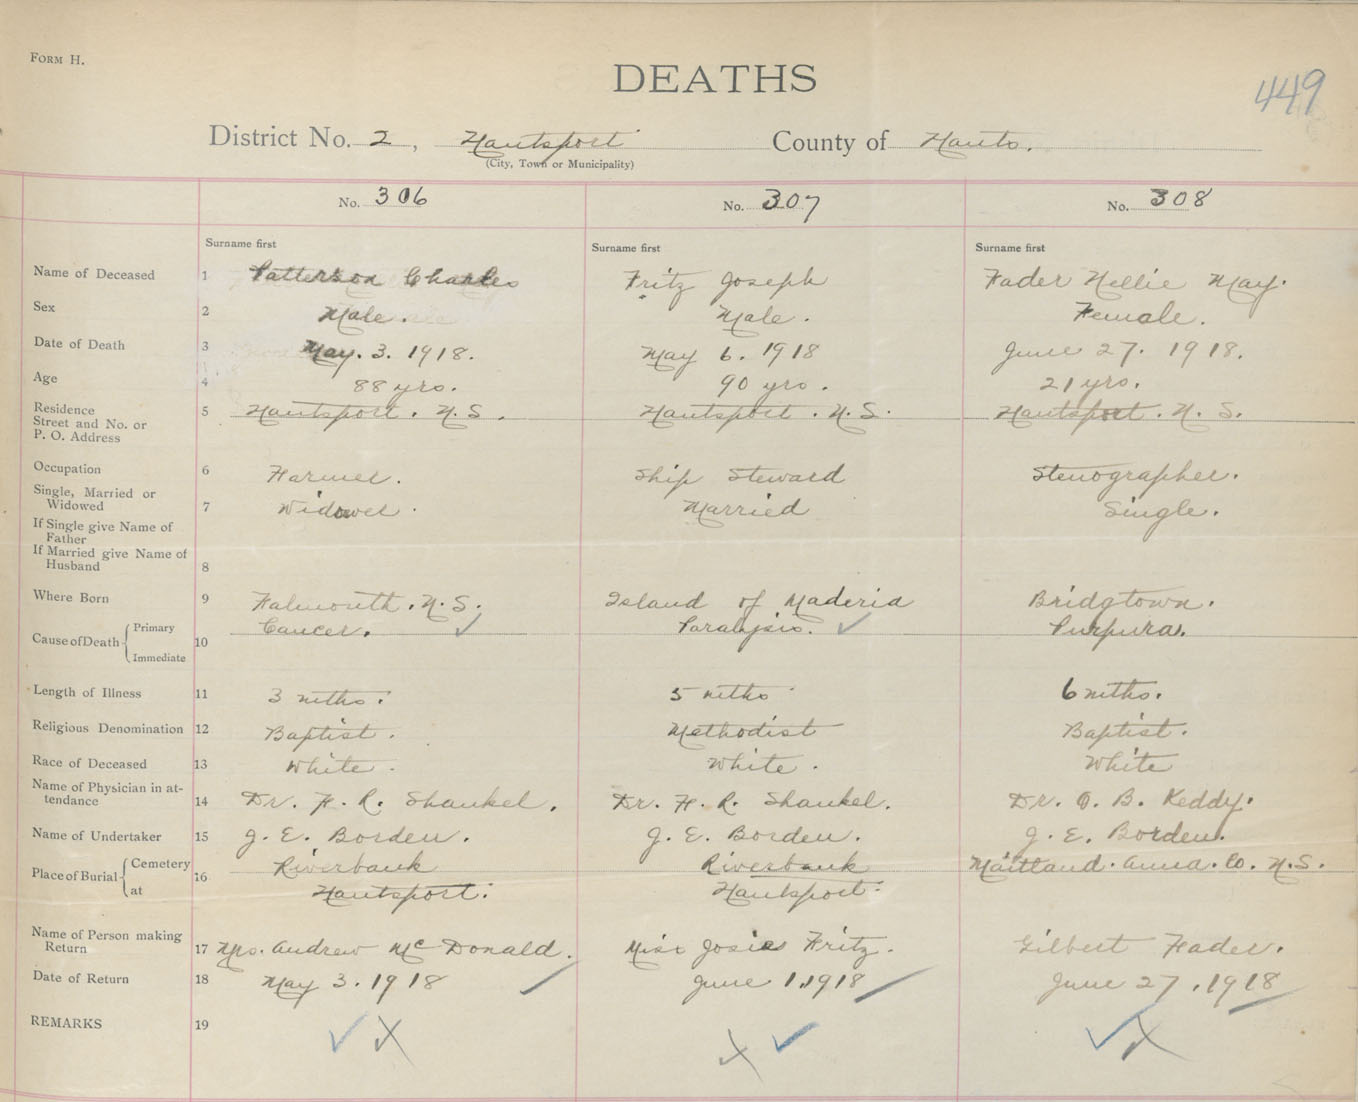 FORM H.
DEATHS
449
District No. 2, Hantsport County of Hants.
(City, Town or Municipality)
No. 306 No. 307 No. 308
Surname first Surname first Surname first
Name of Deceased 1 Patterson Charles Fritz Joseph Fader Nellie May.
Sex 2 Male. Male. Female.
Date of Death 3 May. 3. 1918. May 6. 1918 June 27. 1918.
Age 4 88 yrs. 90 yrs. 21 yrs.
Residence 5 Hantsport. N.S. Hantsport. N.S. Hantsport. N.S.
Street and No. or
P. O. Address
Occupation 6 Farmer. Ship Steward Stenographer.
Single, Married or
Widowed 7 Widower. Married Single.
If Single give Name of
Father
If Married give Name of
Husband 8
Where Born 9 Falmouth. N.S. Island of Maderia Bridgtown.
Cause of Death Primary Cancer. Paralysis. Purpura.
10
Immediate
Length of Illness 11 3 mths. 5 mths 6 mths.
Religious Denomination 12 Baptist. Methodist Baptist.
Race of Deceased 13 White. White. White
Name of Physician in at-
tendance 14 Dr. F. R. Shankel. Dr. F. R. Shankel. Dr. O. B. Keddy.
Name of Undertaker 15 J. E. Borden. J. E. Borden. J. E. Borden.
Place of Burial Cemetery 16 Riverbank Riverbank Maitland. Anna. Co. N.S.
at Hantsport. Hantsport.
Name of Person making
Return 17 Mrs. Andrew McDonald. Miss Josie Fritz. Gilbert Fader.
Date of Return 18 May 3. 1918 June 1. 1918 June 27. 1918
REMARKS 19